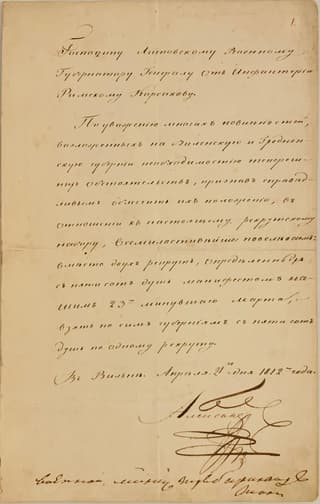 1
Господину Литовскому Военному
Губернатору Генералу отъ Инфантеріи
Римскому Корсакову.
По уваженію многихъ повинностей,
возложенныхъ на Виленскую и Гроднен-
скую губерніи необходимостію тепереш-
нихъ обстоятельствъ, признавъ справед-
ливымъ облегчить ихъ положеніе, въ
отношеніи къ настоящему рекрутскому
набору, Всемилостивѣйше повелѣваемъ:
вмѣсто двухъ рекрутъ, опредѣленныхъ
съ пяти сотъ душъ манифестомъ на-
шимъ 23го минувшаго Марта,
взять по симъ губерніямъ съ пяти сотъ
душъ по одному рекруту.
Въ Вильнѣ. Апрѣля 21го дня 1812го года.
Александръ